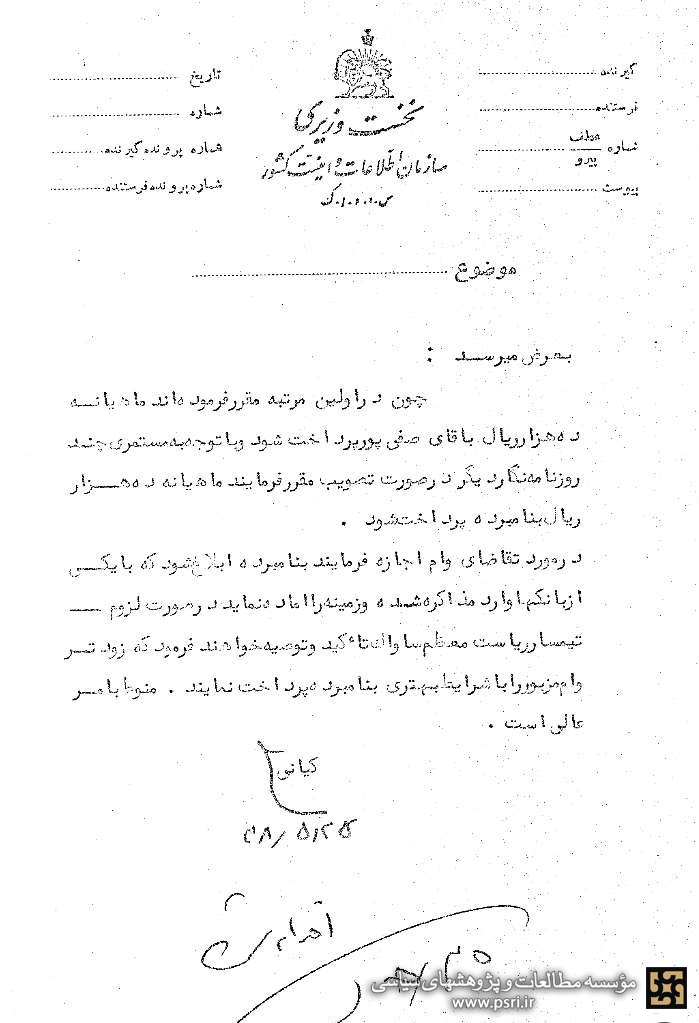 نخست وزیری
سازمان اطلاعات و امنیت کشور
س.ا.و.ا.ک
گیرنده
فرستنده
شماره عطف
پیرو
پیوست
تاریخ
شماره
شماره پرونده گیرنده
شماره پرونده فرستنده
موضوع
بعرض میرسد :
چون در اولین مرتبه مقرر فرموده اند ماهیانه
ده هزار ریال باقای صفی پور پرداخت شود و با توجه به مستمری چند
روزنامه نگار دیگر در صورت تصویب مقرر فرمایند ماهیانه ده هزار
ریال بنامبرده پرداخت شود .
در مورد تقاضای وام اجازه فرمایند بنامبرده ابلاغ شود که با یکی
از بانکها وارد مذاکره شده و زمینه را اماده نماید در صورت لزوم
تیمسار ریاست معظم ساواک تأکید و توصیه خواهند فرمود که زودتر
وام مزبور را با شرایط بهتری بنامبرده پرداخت نمایند . منوط بامر
عالی است .
کیانی
اقدام شد
مؤسسه مطالعات و پژوهشهای سیاسی
www.psri.ir